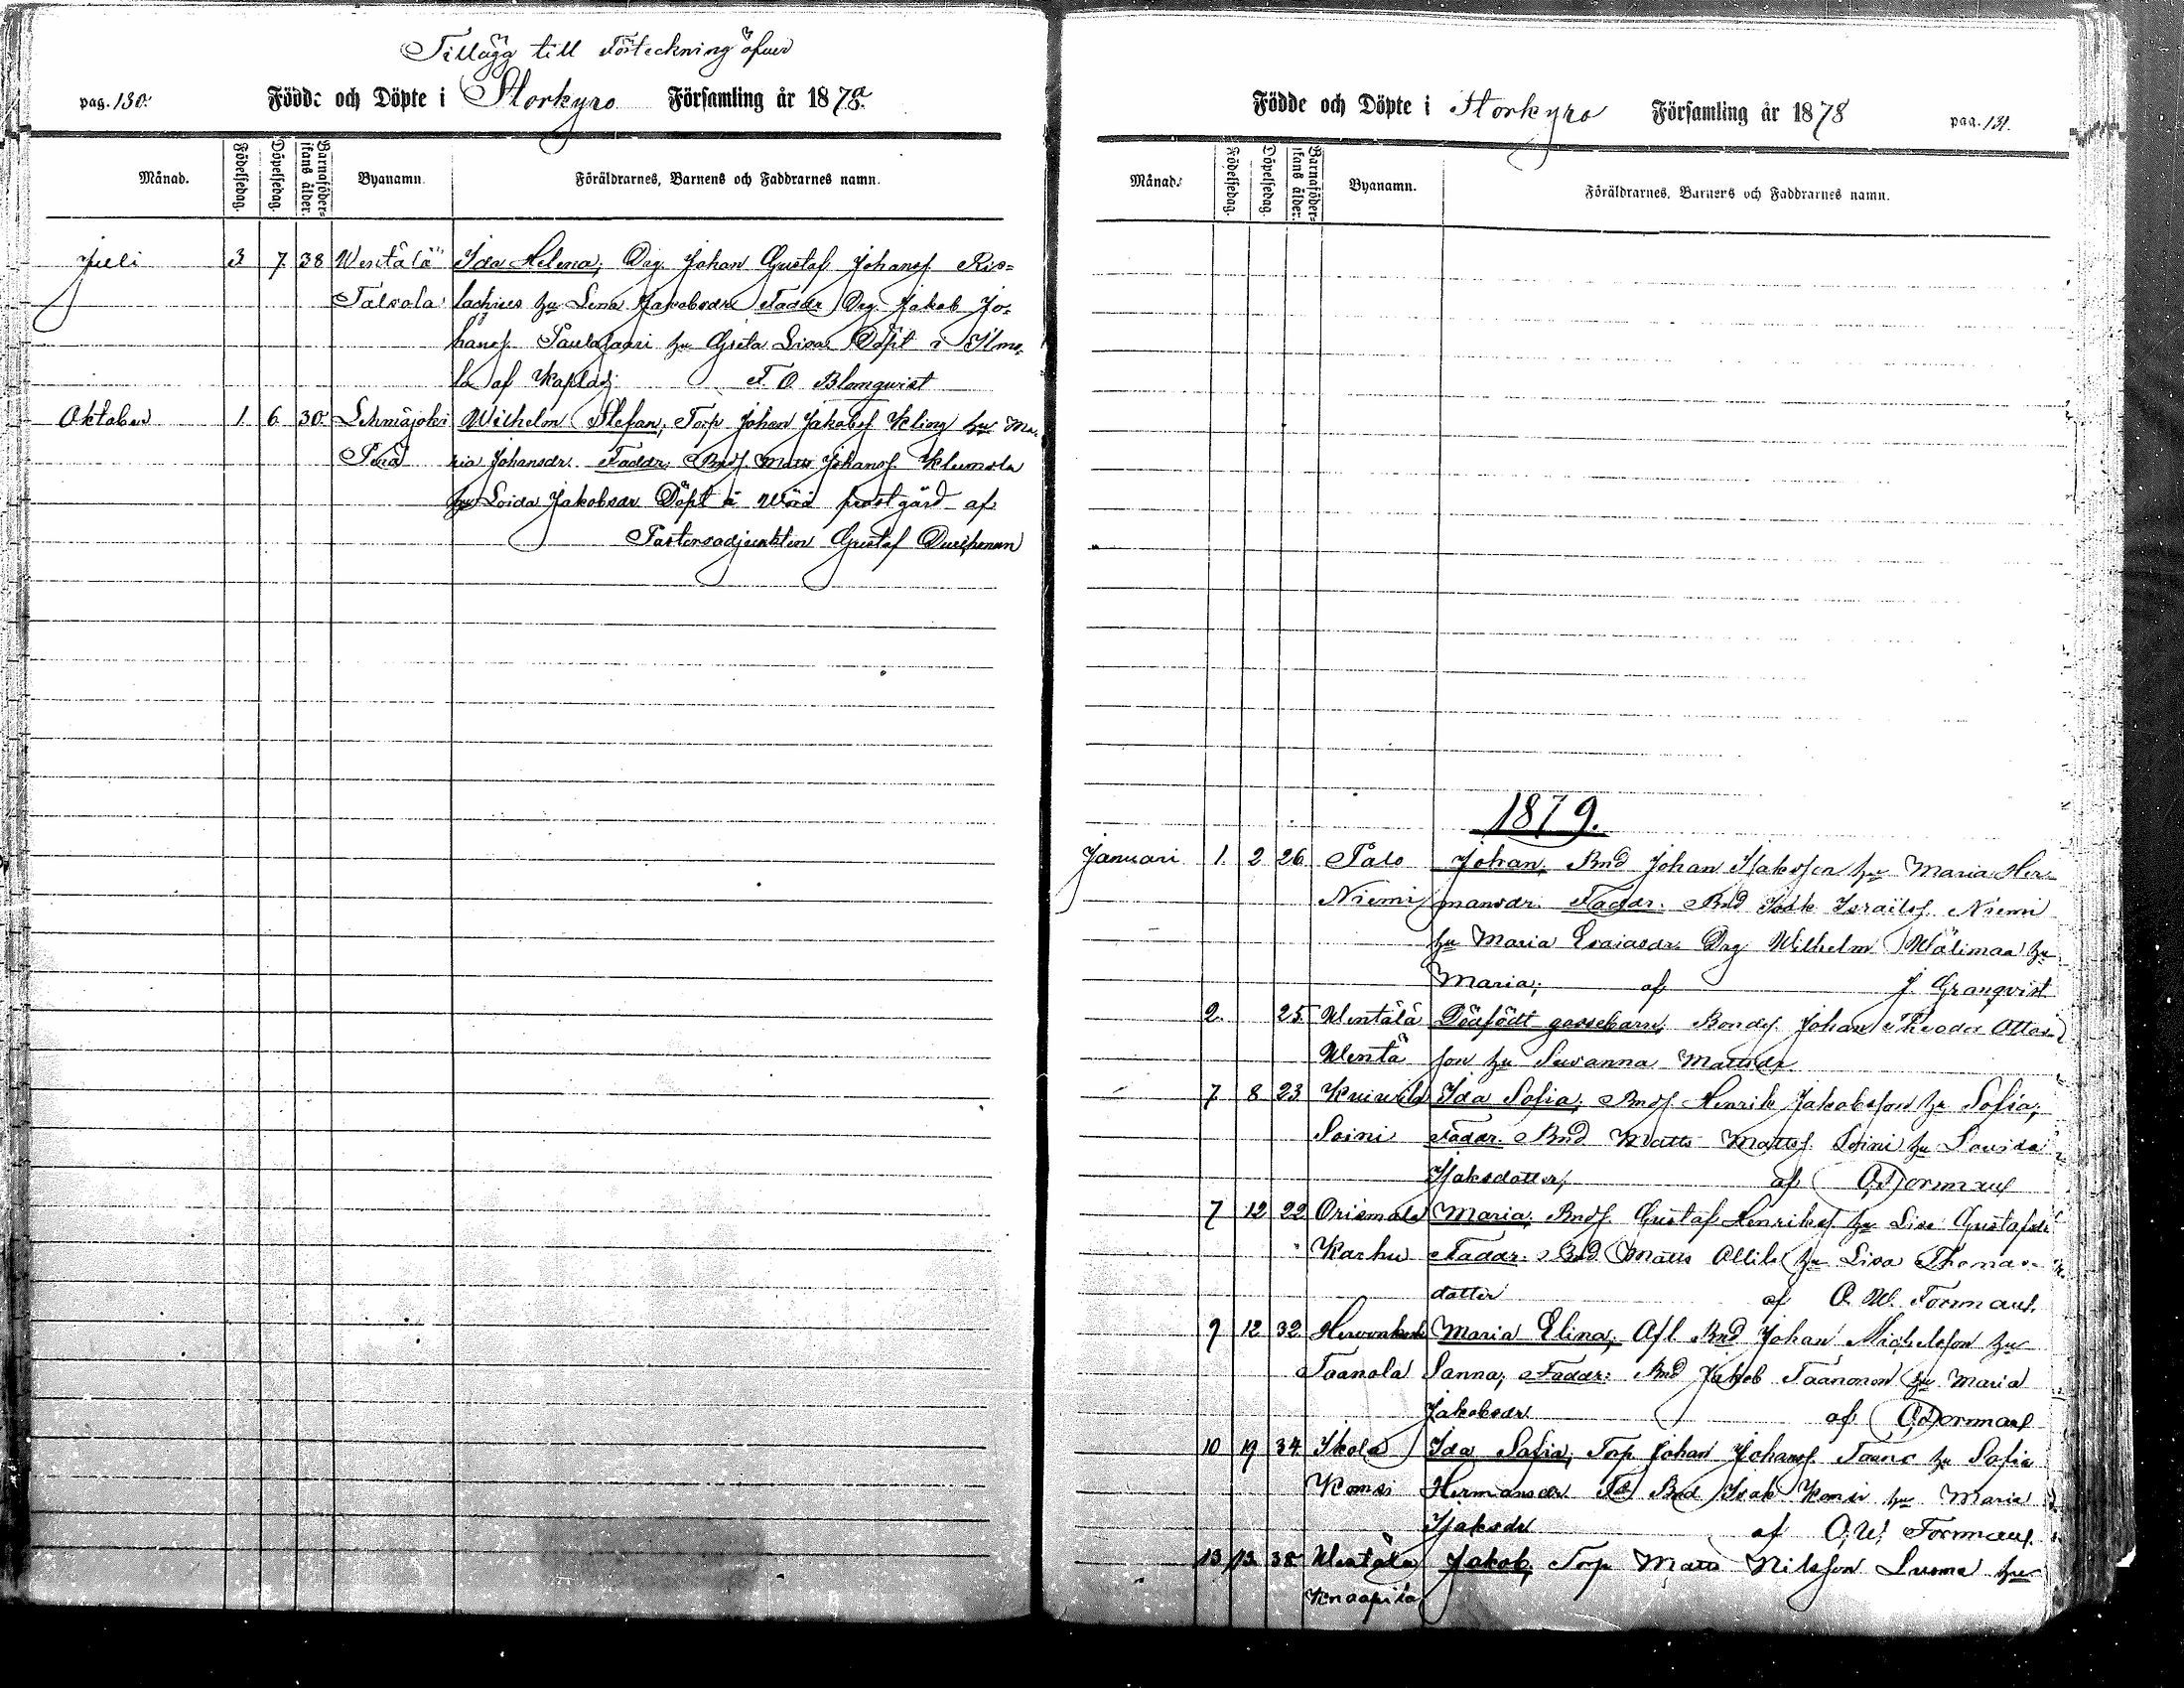 Tillägg till Förteckning öfver
pag. 130. Födde och Döpte i Storkyro Församling år 1878.
Månad. Födelsedag. Döpelsedag. Barnaföderskans ålder. Byanamn. Föräldrarnes, Barnens och Faddrarnes namn.
Juli 3 7 38 Wentälä Ida Helena; Drg. Johan Gustaf Johansf.
Talsola hu Lena Jakobsdr Faddr Drg Jakob Jo-
hansf. hu Greta Lisa. Döpt i Ilmo-
la af Kaplaj. F. O. Blomqvist
Oktober 1. 6. 30. Lehmäjoki Wilhelm Stefan; Torp Johan Jakobsf Kling hu Ma-
Perä ria Johansdr. Faddr: Bndf. Matts Johansf. Klemola
hu Loisa Jakobsdr Döpt i Wörå prostgård af
Pastorsadjunkten Gustaf
Födde och Döpte i Storkyro Församling år 1878 pag. 131.
Månad. Födelsedag. Döpelsedag. Barnaföderskans ålder. Byanamn. Föräldrarnes, Barnens och Faddrarnes namn.
1879.
Januari 1. 2 26 Palo Johan; Bnd Johan Isaksson hu Maria Her-
Niemi mansdr. Faddr. Bnd Isak Israelsf. Niemi
hu Maria Esaiasdr. Drg Wilhelm Wälimaa hu
Maria; af J. Granqvist
2. 25. Wentälä Dödfödt gossebarn; Bondef. Johan Theodor Ottos-
Wentä son hu Susanna Mattsdr
7 8 23 Kuivila Ida Sofia; Bndf. Henrik Jakobsson hu Sofia;
Soini Faddr. Bnd Matts Mattsf. Soini hu Lovisa
Isaksdotter; af
7 12 22 Orismala Maria; Bndf. Gustaf Henriksf hu Lisa Gustafsdr
Karhu Faddr: Bnd Matts Ollila hu Lisa Thomas-
dotter af O. W. Forsman.
9 12 32 Maria Elina; Afl Bnd Johan Michelsson hu
Taanola Sanna; Faddr: Bnd Jakob Taanonen hu Maria
Jakobsdr af
10 19 34 Ikola Ida Sofia; Torp Johan Johansf. hu Sofia
Komsi Hermansdr Fr Bnd Isak Komsi hu Maria
Isaksdr af O. W. Forsman.
13 13 38 Wentälä Jakob; Torp Matts Nilsson Luoma hu
Knaapila